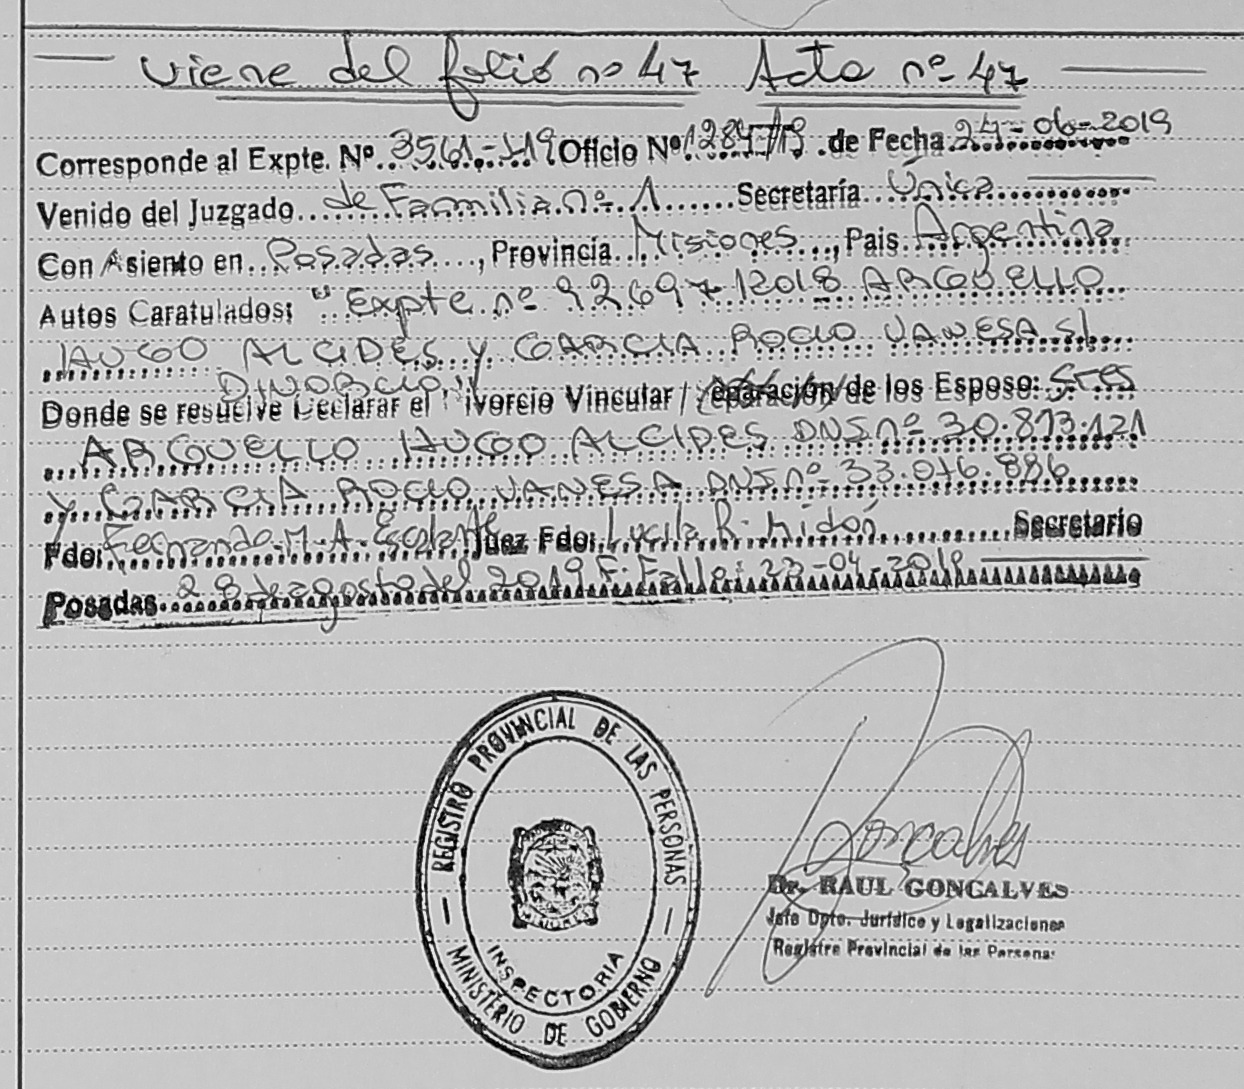 viene del folio nº 47 Acta nº 47
Corresponde al Expte. Nº. 3561-119 Oficio Nº 1284/19 de Fecha 24-06-2019
Venido del Juzgado de Familia nº 1 Secretaría Única
Con Asiento en Posadas, Provincia Misiones, Pais Argentina
Autos Caratulados: "Expte nº 92697/2018 ARGUELLO
HUGO ALCIDES Y GARCIA ROCIO VANESA s/
DIVORCIO"
Donde se resuelve Declarar el Divorcio Vincular / Separación de los Esposo: Sres
ARGUELLO HUGO ALCIDES DNI nº 30.873.121
Y GARCIA ROCIO VANESA DNI nº 33.016.886
Fdo: Fernando M. A. Escalante Juez Fdo: Lucila R. Midón Secretario
Posadas 28 de agosto del 2019 F. Fallo: 23-04-2019
REGISTRO PROVINCIAL DE LAS PERSONAS
INSPECTORIA
MINISTERIO DE GOBIERNO
Goncalves
Dr. RAUL GONCALVES
Jefe Dpto. Jurídico y Legalizaciones
Registro Provincial de las Personas